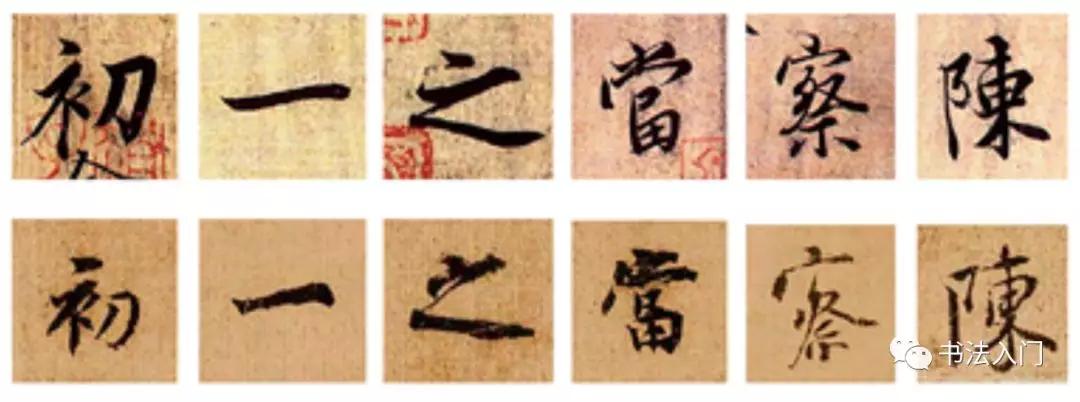 初 一 之 當 察 陳
初 一 之 當 察 陳
书法入门